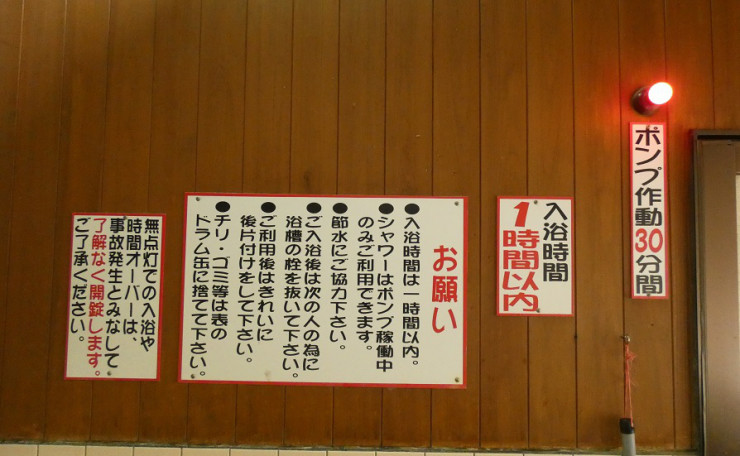 ポンプ作動30分間
入浴時間
1時間以内
お願い
●入浴時間は一時間以内。
●シャワーはポンプ稼働中
のみご利用できます。
●節水にご協力下さい。
●ご入浴後は次の人の為に
浴槽の栓を抜いて下さい。
●ご利用後はきれいに
後片付けをして下さい。
●チリ・ゴミ等は表の
ドラム缶に捨てて下さい。
無点灯での入浴や
時間オーバーは、
事故発生とみなして
了解なく開錠します。
ご了承ください。